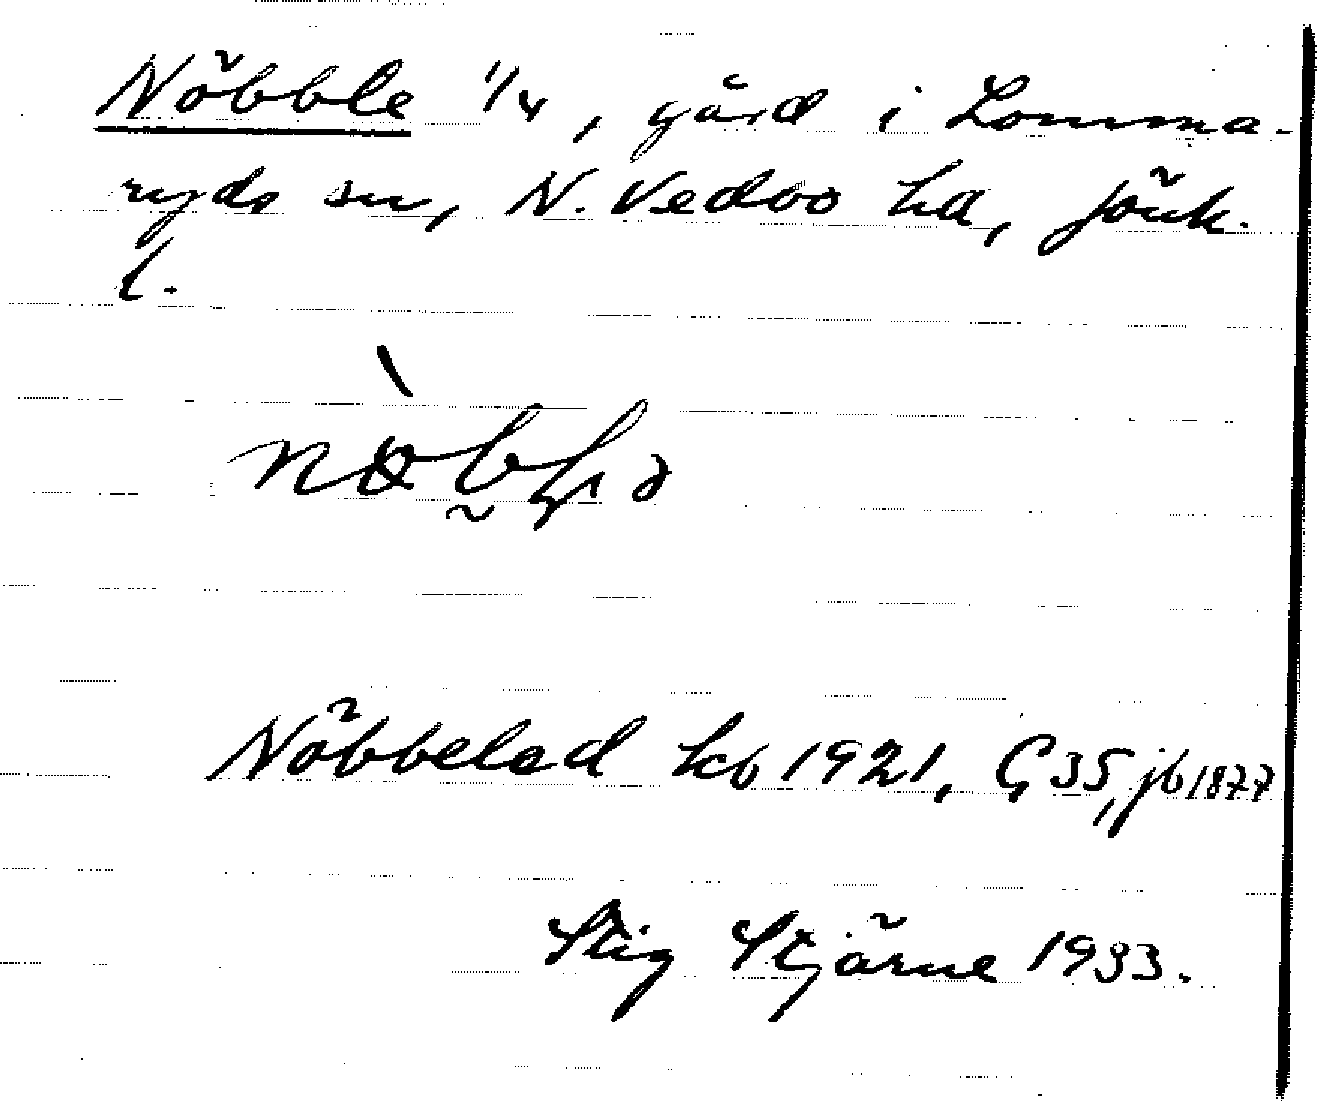 Nöbble 1/4, gård i Lomma-
ryds sn, N. Vedbo hd, Jönk.
l.
Nöbbeled kb 1921, G 35, jb 1877
Stig Stjärne 1933.